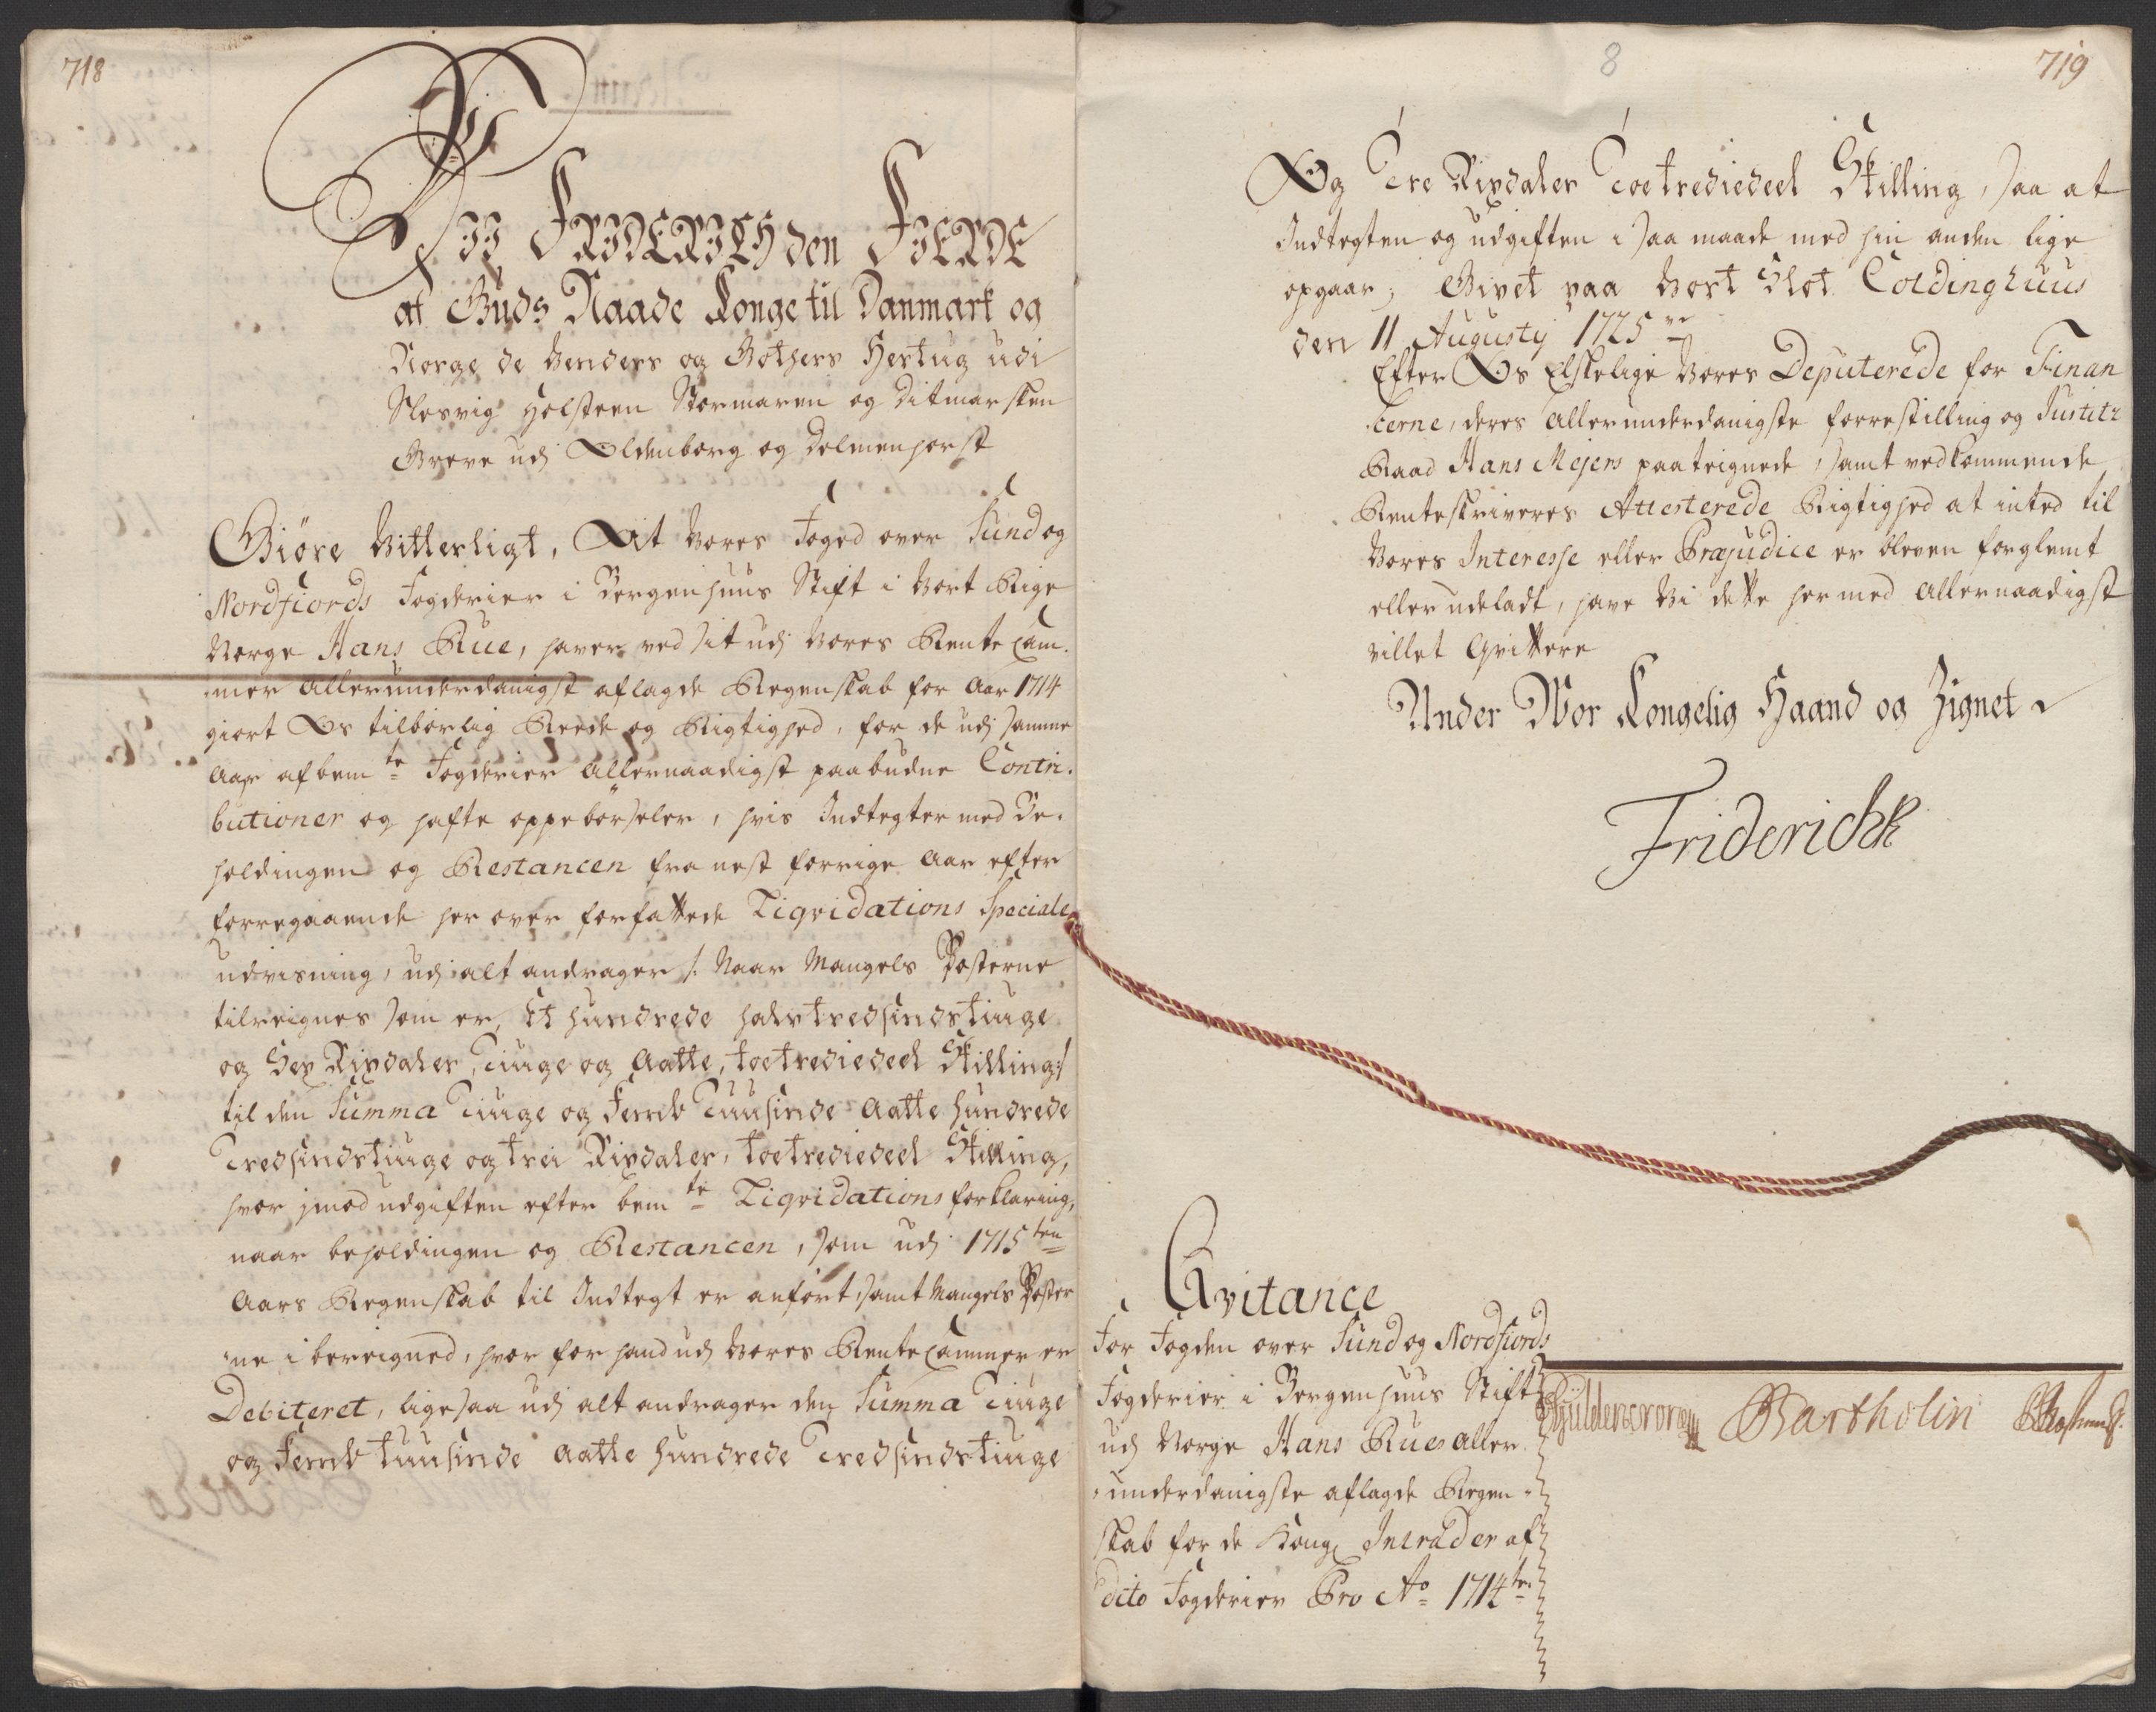 718
Wii FRIDERICH den FIERDE
af Guds Naade Konge til Danmark og
Norge de Venders og Gothers Hertug udi
Slesvig Holsteen Stormaren og Ditmarsken
Greve udj Oldenborg og Delmenhorst
Giöre Vitterligt, At Vores Foged over Sund og
Nordfiords Fogderier i Bergenhuus Stift i Vort Rige
Norge Hans Rue, haver ved sit udj Vores Rente Cam-
mer Allerunderdanigst aflagde Regenskab for Aar 1714
giort Os tilbörlig Reede og Rigtighed, for de udj samme
Aar af bem te Fogderier Allernaadigst paabudne Contri-
butioner og hafte oppebörseler, hvis Indtegter med Be-
holdingen og Restancen fra nest forrige Aar efter
forregaaende her over forfattede Liqvidations Speciale
udvisning, udj alt andrager /: Naar Mangels Posterne
tilreignes som er, Et hundrede halvtredsindstiuge
og Sex Rixdaler, Tiuge og Aatte, toetrediedeel Skilling :/
til den Summa Tiuge og Femb Tuusinde Aatte hundrede
Tredsindstiuge og trei Rixdaler, toetrediedeel Skilling,
hvor jmod udgiften efter bem te Liqvidations forklaring,
naar beholdingen og Restancen, som udj 1715 ten
Aars Regenskab til Indtegt er anfört, samt Mangels Poster
ne i bereigned, hvor for hand udj Vores Rente Cammer er
Debiteret, ligesaa udj alt andrager den Summa Tiuge
og Femb tuusinde Aatte hundrede Tredsindstiuge
8
719
Og Tre Rixdaler Toetrediedeel Skilling, saa at
Indtegten og udgiften i saa maade med hin anden lige
opgaar; Givet paa Vort Slot Coldinghuus
den 11 Augustj 1725 ve
Efter Os Elskelige Vores Deputerede for Finan
cerne, deres Allerunderdanigste forrestilling og Justitz
Raad Hans Mejers paateignede, samt vedkommende
Renteskriveres Attesterede Rigtighed at inted til
Vores Interesse eller Præjudice er bleven forglemt
eller udeladt, have Vi dette her med Allernaadigst
villet Qvittere
Under Vor Kongelig Haand og Zignet
Friderich R
Qvitance
For Fogden over Sund og Nordfiords
Fogderier i Bergenhuus Stift
udj Norge Hans Rues aller
underdanigste aflagde Regen-
skab for de Kong Intrader af
dito Fogderier Pro Ao 1714 ten
Gyldencrone Bartholin